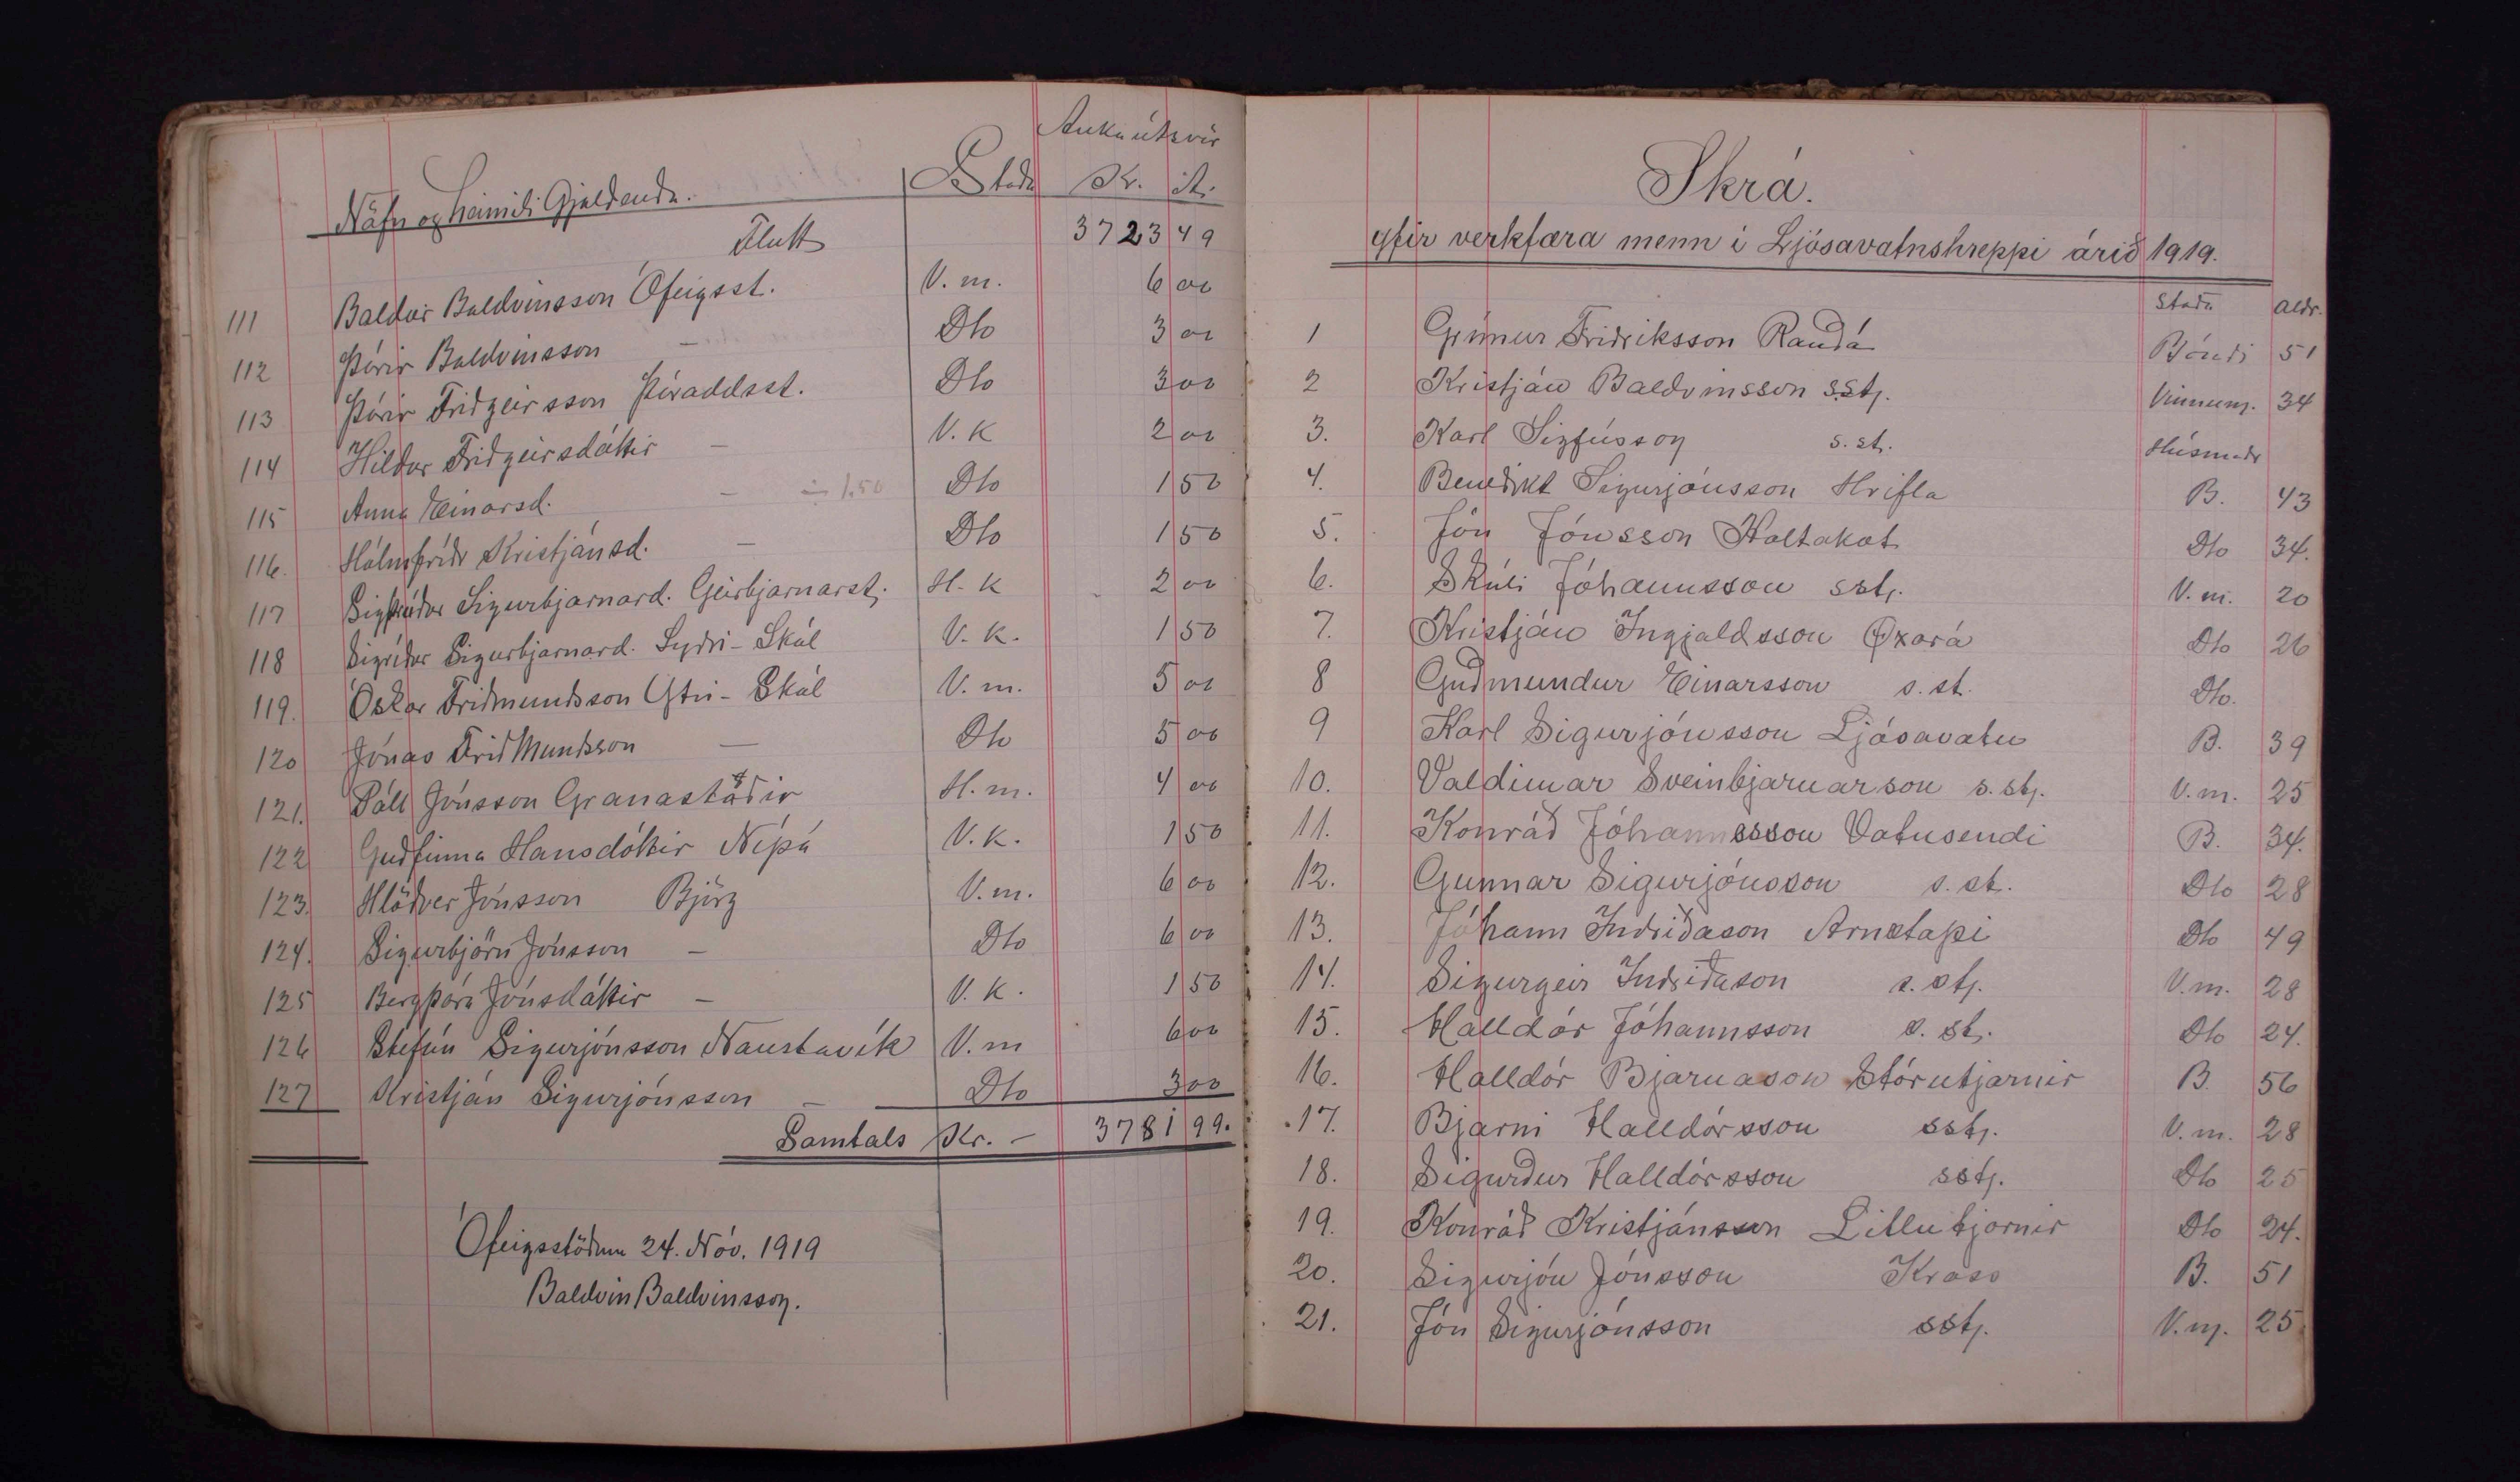 Aukaútsvör
Nöfn og heimili Gjaldenda. Staða Kr. A.
Flutt 3723 49
111 Baldur Baldvinsson Ófeigsst. V. m. 6 00
112 Þórir Baldvinsson — Dto 3 00
113 Þórir Fridgeirsson Þóroddsst. Dto 3 00
114 Hildur Fridgeirsdóttir — V. K 2 00
115 Anna Einarsd. — 1.50 Dto 1 50
116. Hólmfríðr Kristjánsd. — Dto 1 50
117 Sigþrúður Sigurbjarnard. Geirbjarnarst. H. K 2 00
118 Sigríður Sigurbjarnard. Syðri-Skál V. K. 1 50
119. Óskar Fridmundsson Ytri-Skál V. m. 5 00
120 Jónas Fridmundsson — Dto 5 00
121. Páll Jónsson Granastöðir H. m. 4 00
122 Guðfinna Hansdóttir Nípá V. K. 1 50
123. Hlöðver Jónsson Björg V. m. 6 00
124. Sigurbjörn Jónsson — Dto 6 00
125 Bergþóra Jónsdóttir — V. K. 1 50
126 Stefán Sigurjónsson Naustavík V. m 6 00
127 Kristján Sigurjónsson — Dto 3 00
Samtals Kr. - 3781 99.
Ófeigsstöðum 24. Nóv. 1919
Baldvin Baldvinsson.
Skrá.
yfir verkfæra menn í Ljósavatnshreppi árið 1919.
Staða aldr.
1 Grímur Fridriksson Rauðá Bóndi 51
2 Kristján Baldvinsson s.st. Vinnum. 34
3. Karl Sigfússon s. st. Húsmaðr
4. Benedikt Sigurjónsson Hrifla B. 43
5. Jón Jónsson Holtakot Dto 34.
6. Skúli Jóhannsson sst. V. m. 20
7. Kristján Ingjaldsson Öxará Dto 26
8 Guðmundur Einarsson s. st. Dto.
9 Karl Sigurjónsson Ljósavatn B. 39
10. Valdimar Sveinbjarnarson s. st. V. m. 25
11. Konráð Jóhannsson Vatnsendi B. 34.
12. Gunnar Sigurjónsson s. st. Dto 28
13. Jóhann Indriðason Arnstapi Dto 49
14. Sigurgeir Indriðason s. st. V. m. 28
15. Halldór Jóhannsson s. st. Dto 24.
16. Halldór Bjarnason Stórutjarnir B. 56
17. Bjarni Halldórsson sst. V. m. 28
18. Sigurður Halldórsson sst. Dto 25
19. Konráð Kristjánsson Litlutjornir Dto 24.
20. Sigurjón Jónsson Kross B. 51
21. Jón Sigurjónsson sst. V. m. 25